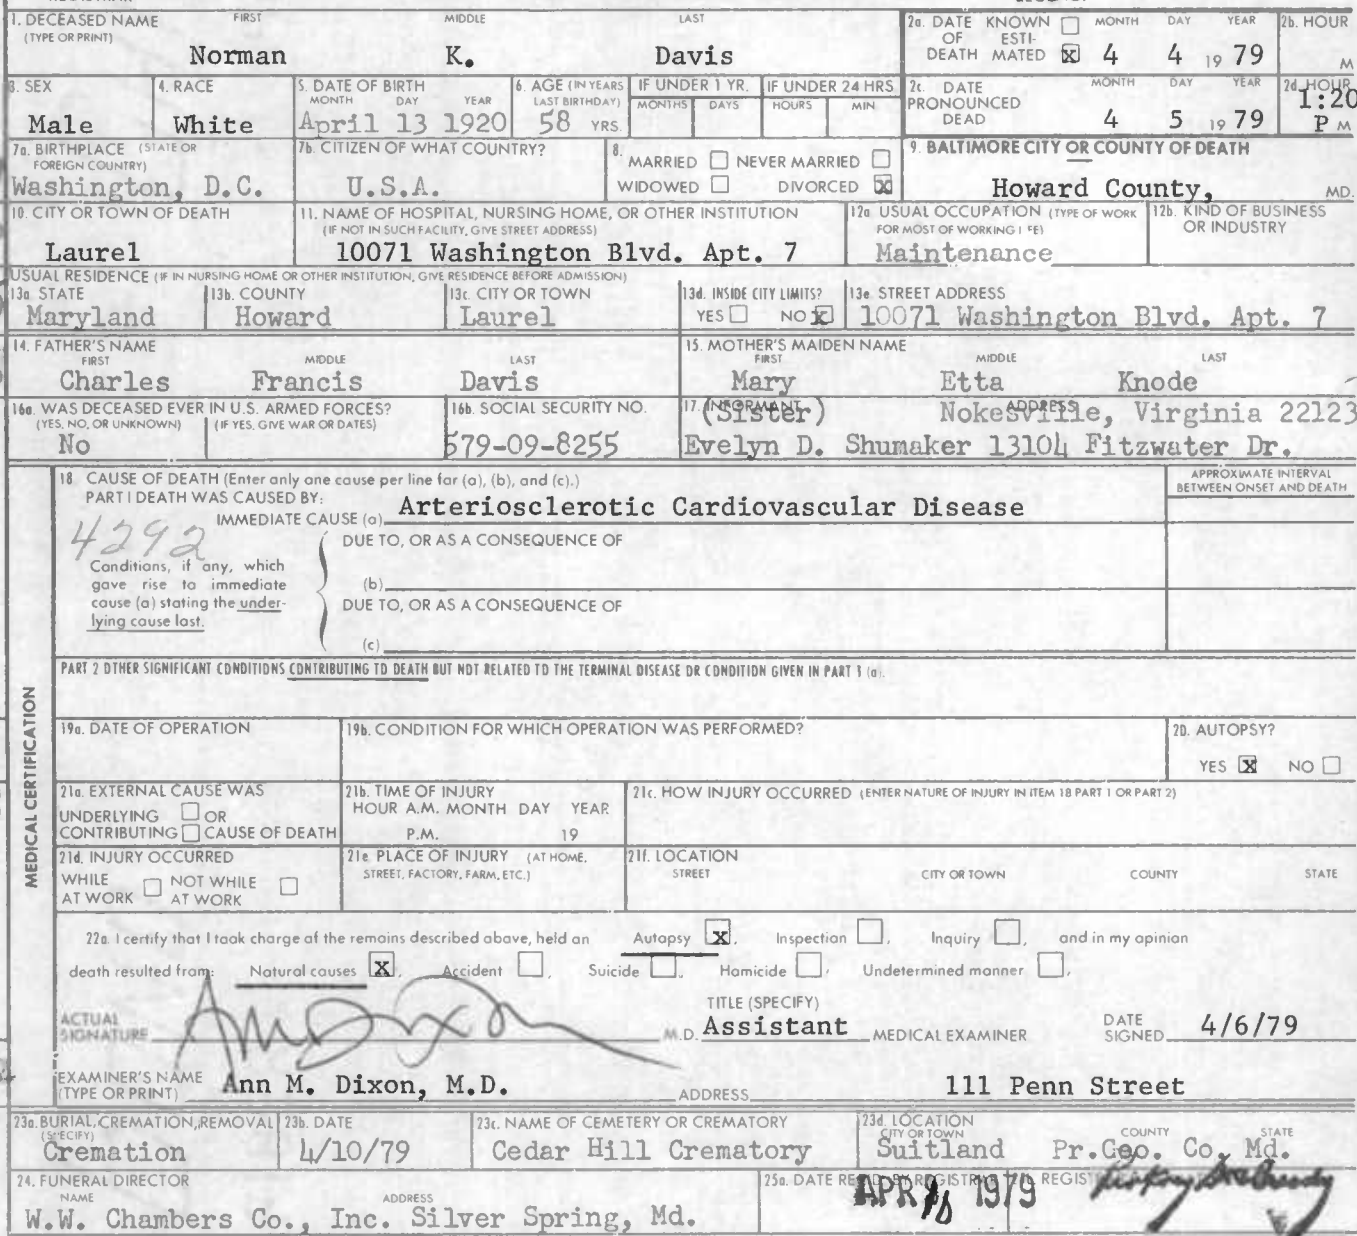 1. DECEASED NAME FIRST MIDDLE LAST
(TYPE OR PRINT)
Norman K. Davis
2a. DATE KNOWN ☐ MONTH DAY YEAR
OF ESTI-
DEATH MATED ☒ 4 4 19 79
2b. HOUR
M
3. SEX
Male
4. RACE
White
5. DATE OF BIRTH
MONTH DAY YEAR
April 13 1920
6. AGE (IN YEARS
LAST BIRTHDAY)
58 YRS.
IF UNDER 1 YR.
MONTHS DAYS
IF UNDER 24 HRS
HOURS MIN
2c. DATE MONTH DAY YEAR
PRONOUNCED
DEAD 4 5 19 79
2d. HOUR
1:20
P M
7a. BIRTHPLACE (STATE OR
FOREIGN COUNTRY)
Washington, D.C.
7b. CITIZEN OF WHAT COUNTRY?
U.S.A.
8.
MARRIED ☐ NEVER MARRIED ☐
WIDOWED ☐ DIVORCED ☒
9. BALTIMORE CITY OR COUNTY OF DEATH
Howard County, MD.
10. CITY OR TOWN OF DEATH
Laurel
11. NAME OF HOSPITAL, NURSING HOME, OR OTHER INSTITUTION
(IF NOT IN SUCH FACILITY, GIVE STREET ADDRESS)
10071 Washington Blvd. Apt. 7
12a USUAL OCCUPATION (TYPE OF WORK
FOR MOST OF WORKING LIFE)
Maintenance
12b. KIND OF BUSINESS
OR INDUSTRY
USUAL RESIDENCE (IF IN NURSING HOME OR OTHER INSTITUTION, GIVE RESIDENCE BEFORE ADMISSION)
13a STATE
Maryland
13b. COUNTY
Howard
13c. CITY OR TOWN
Laurel
13d. INSIDE CITY LIMITS?
YES ☐ NO ☒
13e. STREET ADDRESS
10071 Washington Blvd. Apt. 7
14. FATHER'S NAME
FIRST MIDDLE LAST
Charles Francis Davis
15. MOTHER'S MAIDEN NAME
FIRST MIDDLE LAST
Mary Etta Knode
16a. WAS DECEASED EVER IN U.S. ARMED FORCES?
(YES, NO, OR UNKNOWN) (IF YES, GIVE WAR OR DATES)
No
16b. SOCIAL SECURITY NO.
579-09-8255
17. INFORMANT ADDRESS
(Sister) Nokesville, Virginia 22123
Evelyn D. Shumaker 13104 Fitzwater Dr.
MEDICAL CERTIFICATION
18 CAUSE OF DEATH (Enter only one cause per line for (a), (b), and (c).)
PART I DEATH WAS CAUSED BY:
IMMEDIATE CAUSE (a) Arteriosclerotic Cardiovascular Disease
APPROXIMATE INTERVAL
BETWEEN ONSET AND DEATH
4292
DUE TO, OR AS A CONSEQUENCE OF
Conditions, if any, which
gave rise to immediate
cause (a) stating the under-
lying cause last.
(b)
DUE TO, OR AS A CONSEQUENCE OF
(c)
PART 2 OTHER SIGNIFICANT CONDITIONS CONTRIBUTING TO DEATH BUT NOT RELATED TO THE TERMINAL DISEASE OR CONDITION GIVEN IN PART 1 (a).
19a. DATE OF OPERATION
19b. CONDITION FOR WHICH OPERATION WAS PERFORMED?
20. AUTOPSY?
YES ☒ NO ☐
21a. EXTERNAL CAUSE WAS
UNDERLYING ☐ OR
CONTRIBUTING ☐ CAUSE OF DEATH
21b. TIME OF INJURY
HOUR A.M. MONTH DAY YEAR
P.M. 19
21c. HOW INJURY OCCURRED (ENTER NATURE OF INJURY IN ITEM 18 PART 1 OR PART 2)
21d. INJURY OCCURRED
WHILE ☐ NOT WHILE ☐
AT WORK AT WORK
21e PLACE OF INJURY (AT HOME,
STREET, FACTORY, FARM, ETC.)
21f. LOCATION
STREET CITY OR TOWN COUNTY STATE
22a. I certify that I took charge of the remains described above, held an Autopsy ☒, Inspection ☐, Inquiry ☐, and in my opinion
death resulted from: Natural causes ☒, Accident ☐, Suicide ☐, Homicide ☐, Undetermined manner ☐,
ACTUAL
SIGNATURE Ann M Dixon M.D.
TITLE (SPECIFY)
Assistant MEDICAL EXAMINER
DATE
SIGNED 4/6/79
EXAMINER'S NAME
(TYPE OR PRINT) Ann M. Dixon, M.D. ADDRESS 111 Penn Street
23a. BURIAL, CREMATION, REMOVAL
(SPECIFY)
Cremation
23b. DATE
4/10/79
23c. NAME OF CEMETERY OR CREMATORY
Cedar Hill Crematory
23d. LOCATION
CITY OR TOWN COUNTY STATE
Suitland Pr.Geo. Co. Md.
24. FUNERAL DIRECTOR
NAME ADDRESS
W.W. Chambers Co., Inc. Silver Spring, Md.
25a. DATE REC'D BY REGISTRAR
APR 1979